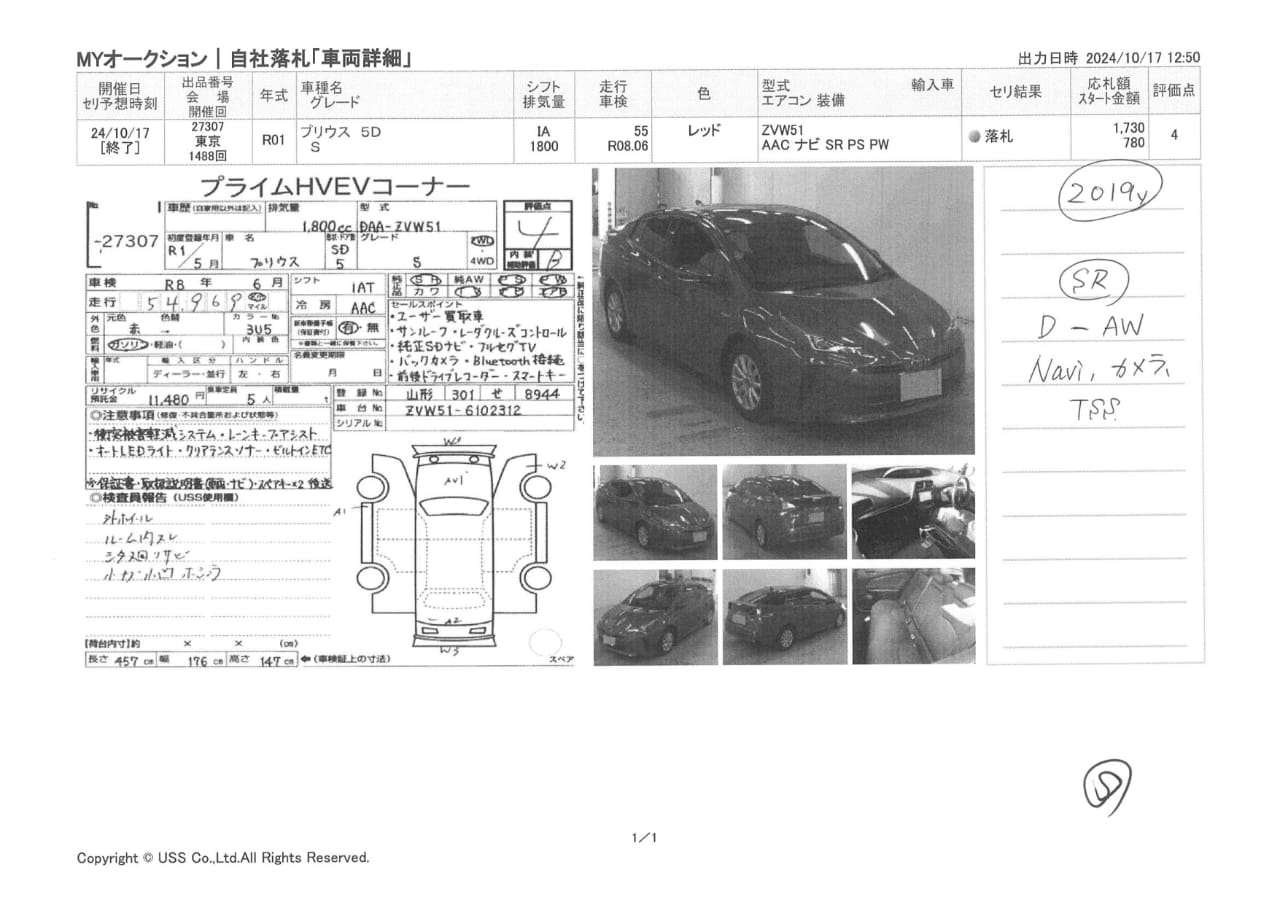 MYオークション | 自社落札「車両詳細」
出力日時 2024/10/17 12:50
開催日
セリ予想時刻
出品番号
会 場
開催回
年式
車種名
グレード
シフト
排気量
走行
車検
色
型式
エアコン 装備
輸入車
セリ結果
応札額
スタート金額
評価点
24/10/17
[終了]
27307
東京
1488回
R01
プリウス 5D
S
IA
1800
55
R08.06
レッド
ZVW51
AAC ナビ SR PS PW
落札
1,730
780
4
プライムHVEVコーナー
No.
-27307
車歴 (自家用以外は記入)
排気量
1,800cc
型 式
DAA-ZVW51
初度登録年月
R1
5月
車 名
プリウス
形状・ドア数
5D
5
グレード
S
2WD
・
4WD
評価点
4
内装
補助評価
B
車検 R8 年 6 月
シフト
IAT
走行 54,969 km マイル
冷房 AAC
外色
元色
赤
色替
→
カラーNo.
3U5
内装色
燃料
ガソリン・軽油・( )
新車整備手帳
(保証書付)
有・無
※書類と一緒に保管下さい。
名義変更期限
月 日
輸入車用
年式
輸入区分
ディーラー・並行
ハンドル
左・右
純正品
SR 純AW PS PW
カワ TV ナビ エアB
セールスポイント
・ユーザー買取車
・サンルーフ・レーダクルーズコントロール
・純正SDナビ・フルセグTV
・バックカメラ・Bluetooth接続
・前後ドライブレコーダー・スマートキー
リサイクル
預託金
11,480 円
乗車定員
5 人
積載量
t
登録No. 山形 301 せ 8944
車台No. ZVW51-6102312
シリアルNo.
◎注意事項(修復・不具合箇所および状態等)
・衝突被害軽減システム・レーンキープアシスト
・オートLEDライト・クリアランスソナー・ビルトインETC
※保証書・取扱説明書(車両・ナビ)・スペアキー×2 後送
◎検査員報告 (USS使用欄)
外ホイール
ルーム内スレ
シタ廻リサビ
W3
W2
A1
A2
W3
スペア
【荷台内寸】約 × × (cm)
長さ 457 cm 幅 176 cm 高さ 147 cm ←(車検証上の寸法)
2019y
SR
D-AW
Navi, カメラ,
TSS
1/1
Copyright © USS Co.,Ltd.All Rights Reserved.